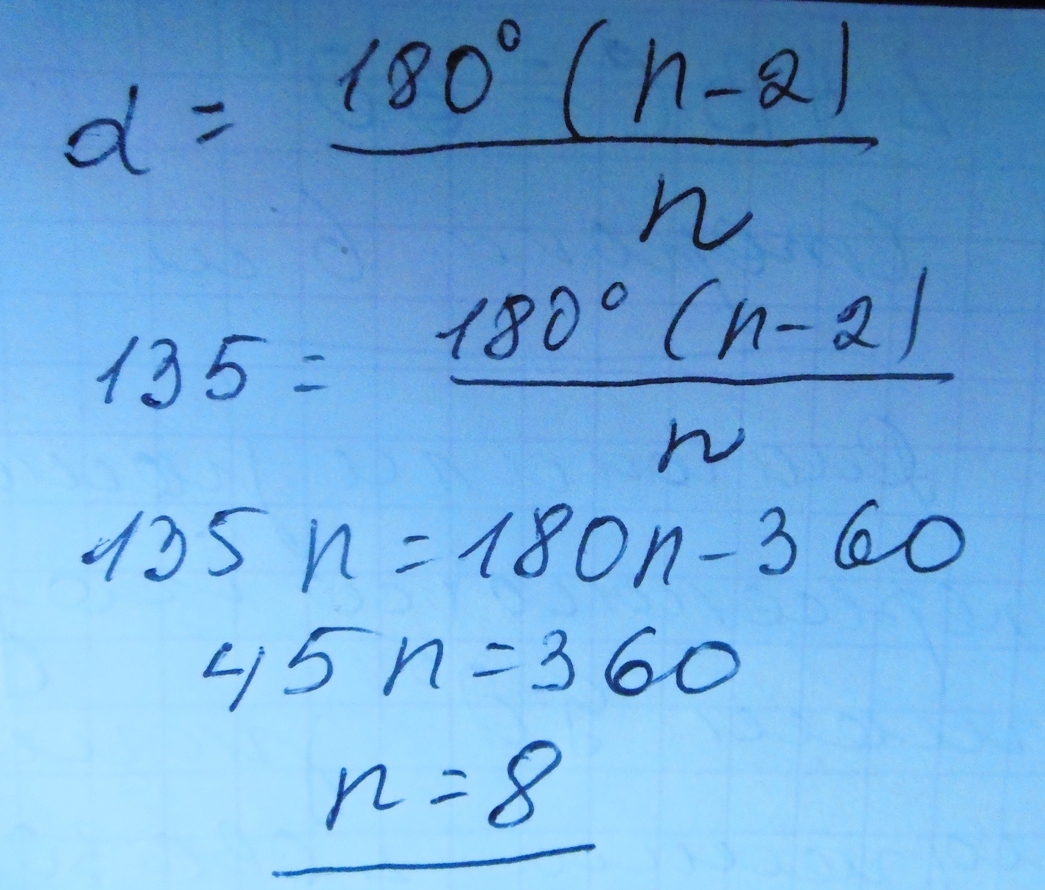 α = 180° (n-2) / n
135 = 180° (n-2) / n
135 n = 180n - 360
45 n = 360
n = 8